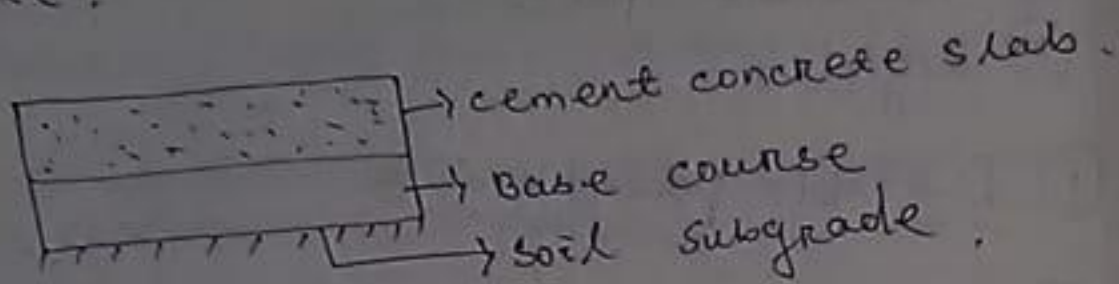 cement concrete slab.
Base course
soil subgrade.